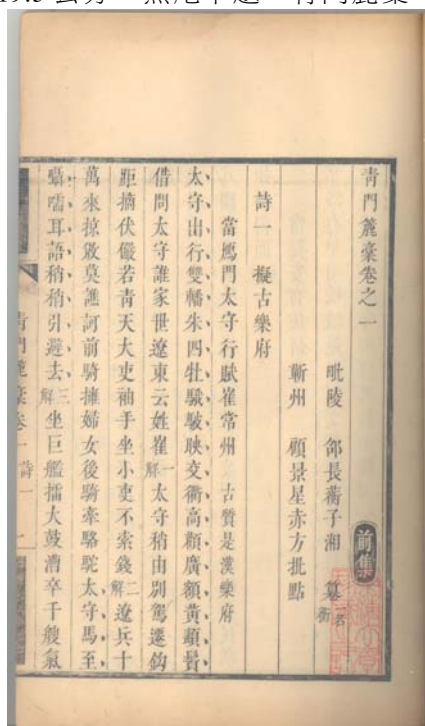 青門簏稾卷之一
前集
毗陵 邵長蘅子湘 纂 一名衡
蘄州 顧景星赤方批點
詩一 擬古樂府
當鴈門太守行賦崔常州 古質是漢樂府
太守出行雙幡朱四牡騤騤映交衢高顴廣額黃頾鬚
借問太守誰家世遼東云姓崔一解太守稍由別駕遷鈎
距擿伏儼若靑天大吏袖手坐小吏不索錢二解遼兵十
萬來掠敓莫譙訶前騎擁婦女後騎牽駱駝太守馬至
囁嚅耳語稍稍引避去三解坐巨艦擂大鼓漕卒千艘氣
靑門簏稾卷一 詩一